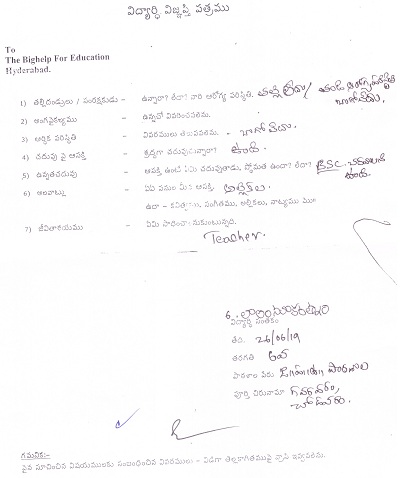 విద్యార్థి విజ్ఞప్తి పత్రము
To
The Bighelp For Education
Hyderabad.
1) తల్లిదండ్రులు / సంరక్షకుడు - ఉన్నారా? లేదా? వారి ఆరోగ్య పరిస్థితి. తల్లి లేదు/ తండ్రి
2) అంగవైకల్యము - ఉన్నచో వివరించవలెను.
3) ఆర్థిక పరిస్థితి - వివరములు తెలుపవలెను. - బాగోలేదు.
4) చదువు పై ఆసక్తి - శ్రద్ధగా చదువుచున్నారా? ఉంది
5) ఉన్నతచదువు - ఆసక్తి ఉంటే ఏమి చదువుతాడు, స్తోమత ఉందా? లేదా? BSC. చదవాలని ఉంది.
6) అలవాట్లు - ఏఏ పనుల మీద ఆసక్తి. అల్లికలు.
ఉదా - కవిత్వము, సంగీతము, అల్లికలు, నాట్యము
7) జీవితాశయము - ఏమి సాధించాలనుకుంటున్నది.
Teacher.
విద్యార్థి సంతకం
తేది. 26/06/19
తరగతి
పాఠశాల పేరు పాఠశాల
పూర్తి చిరునామా గవరవరం,
చోడవరం.
గమనిక:-
పైన సూచించిన విషయములకు సంబంధించిన వివరములు - విడిగా తెల్లకాగితముపై వ్రాసి ఇవ్వవలెను.